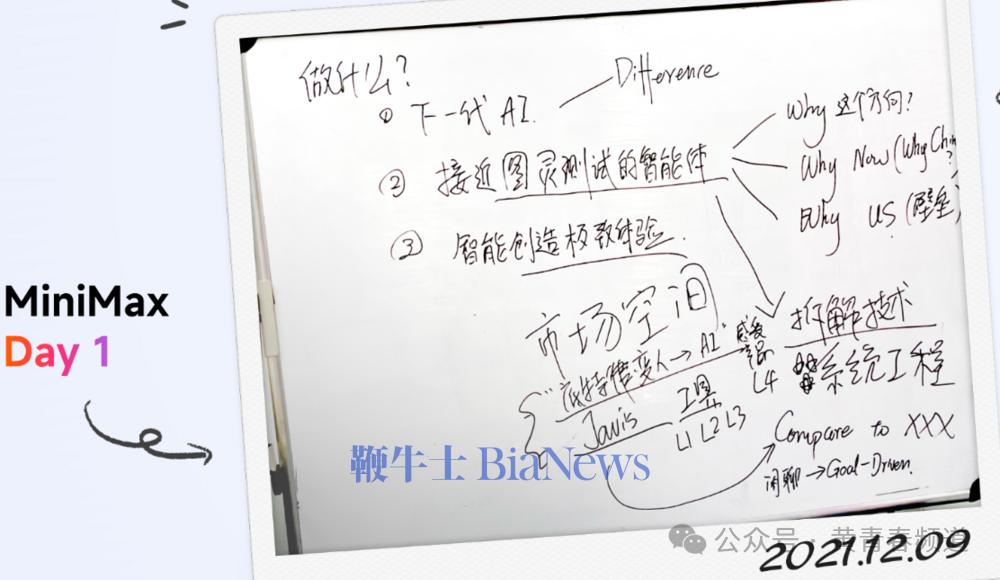 MiniMax
Day 1
做什么?
① 下一代 AI.
Difference
② 接近图灵测试的智能体
Why 这个方向?
Why Now (Why Chin
?
Why US (壁垒)
③ 智能创造极致体验.
市场空间
底特律变人→AI
L4
拆解技术
系统工程
Javis
工具
L1 L2 L3
Compare to XXX
闲聊→Goal-Driven.
鞭牛士 BiaNews
公众号·黄青春频道
2021.12.09